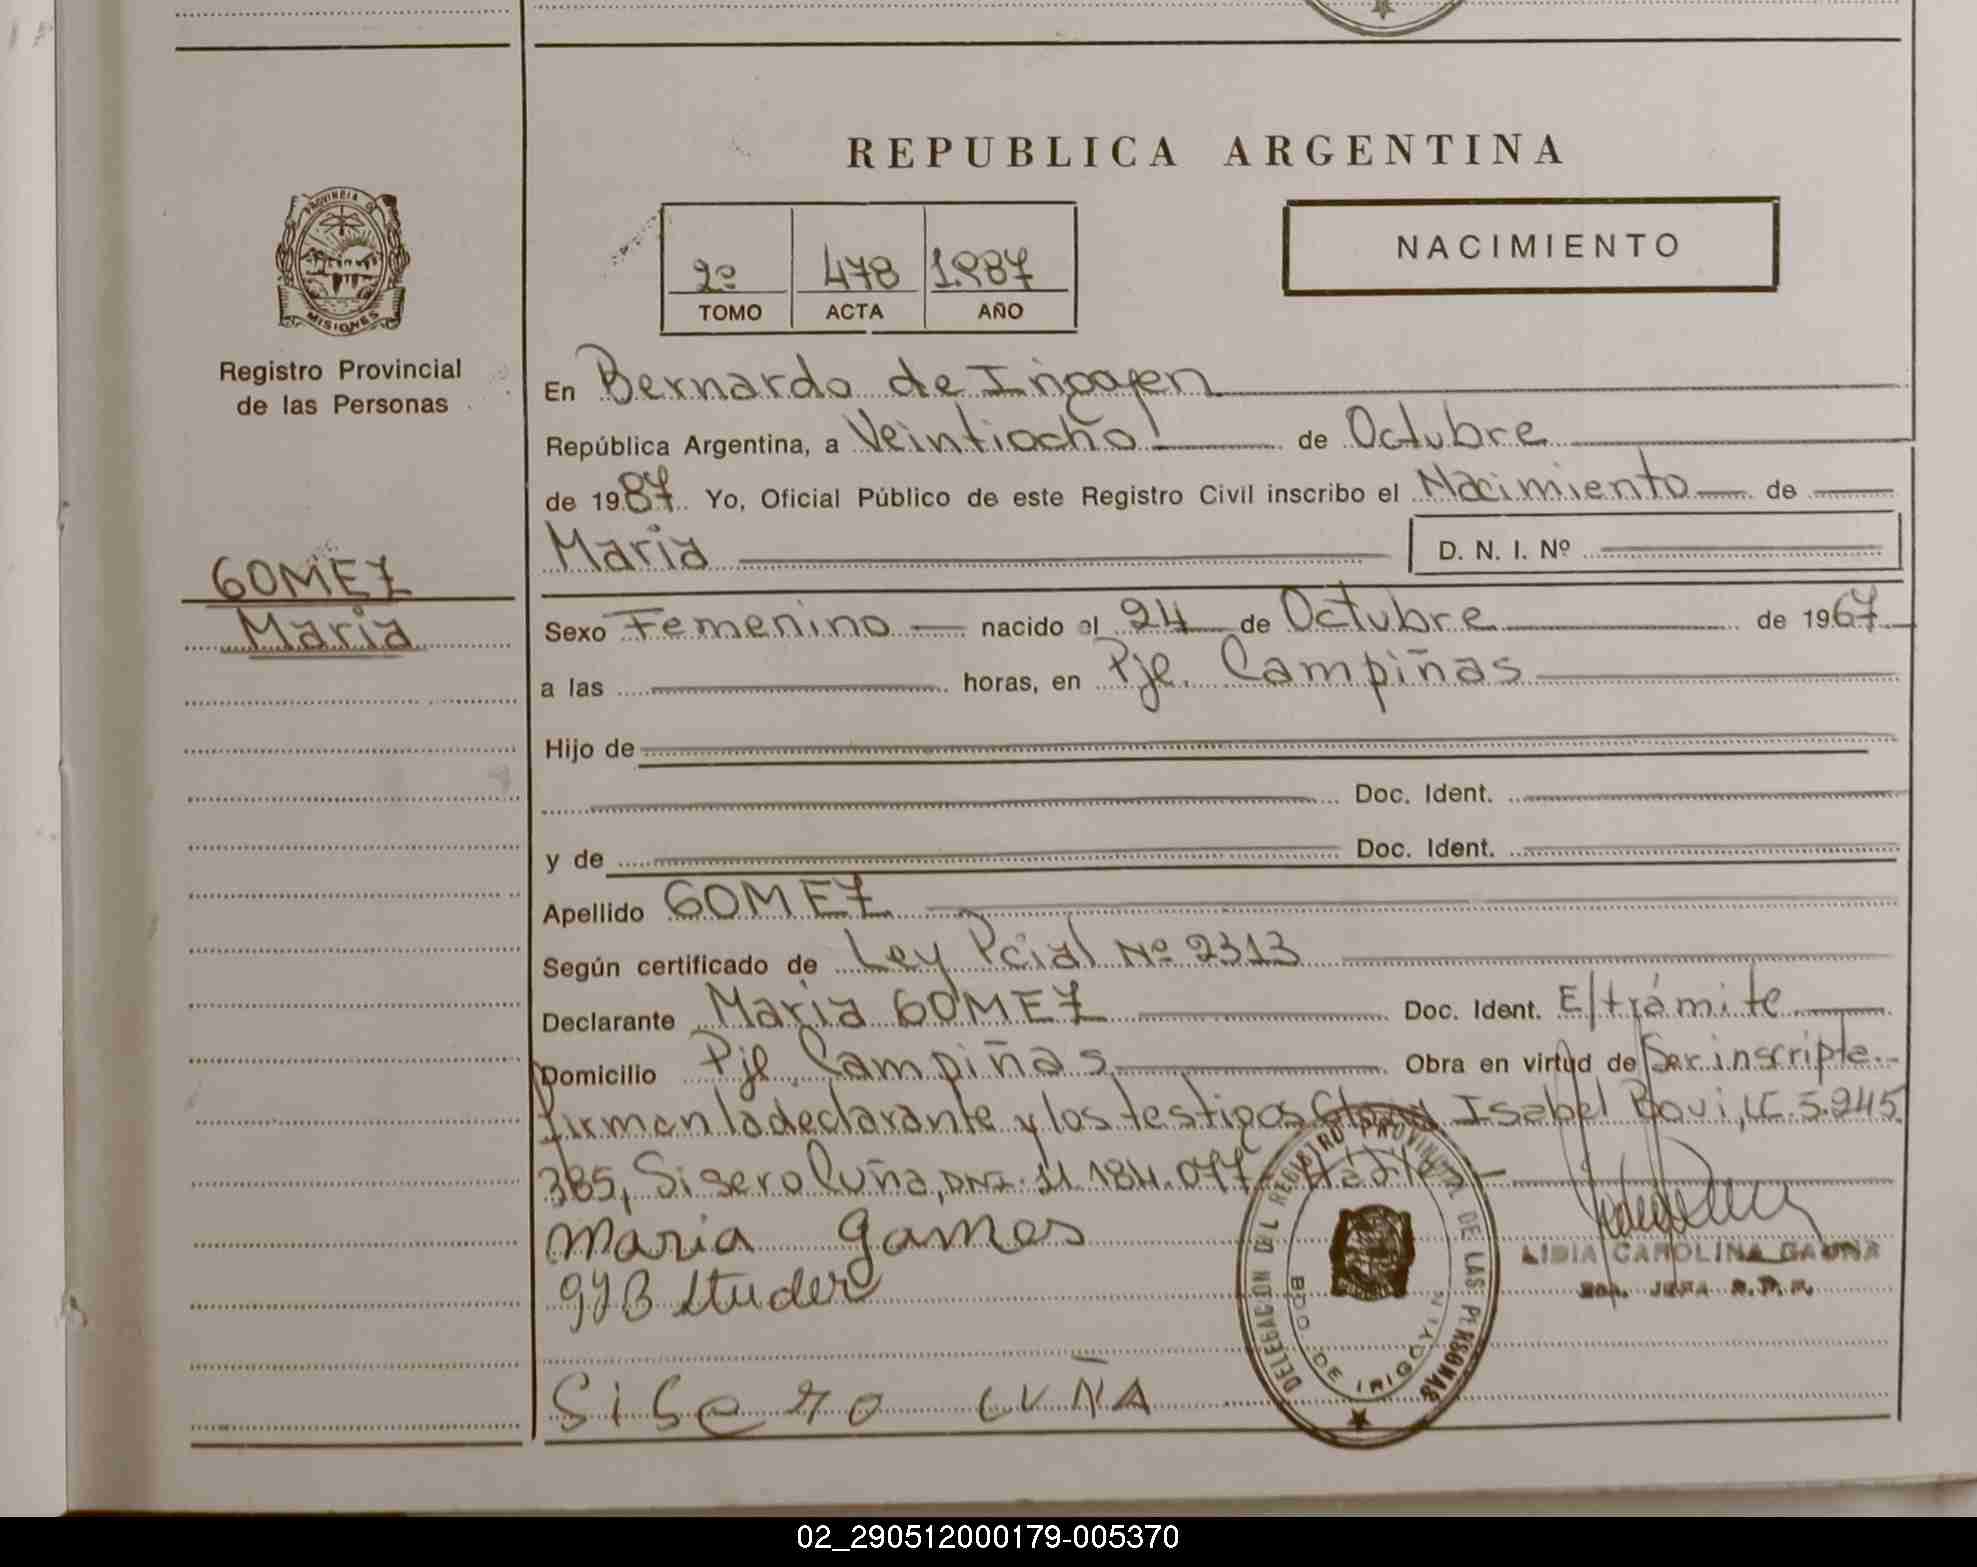 REPUBLICA ARGENTINA
PROVINCIA DE
MISIONES
Registro Provincial
de las Personas
2º 478 1987
TOMO ACTA AÑO
NACIMIENTO
En Bernardo de Irigoyen
República Argentina, a Veintiocho de Octubre
de 1987. Yo, Oficial Público de este Registro Civil inscribo el Nacimiento de
Maria D. N. I. Nº
GOMEZ
Maria
Sexo Femenino nacido el 24 de Octubre de 1967
a las horas, en Pje. Campiñas
Hijo de
Doc. Ident.
y de Doc. Ident.
Apellido GOMEZ
Según certificado de Ley Pcial Nº 2313
Declarante Maria GOMEZ Doc. Ident. E/trámite
Domicilio Pje Campiñas Obra en virtud de Ser inscripta.
firman la declarante y los testigos Isabel Bovi, LC. 5.245.
385, Sisero Cuña, DNI. 11.184.077
maria gomes
Studer
SiSero CUÑA
DELEGACION DEL REGISTRO PROVINCIAL DE LAS PERSONAS
BDO. DE IRIGOYEN
LIDIA CAROLINA GAUNA
JEFA R.P.P.
02_290512000179-005370